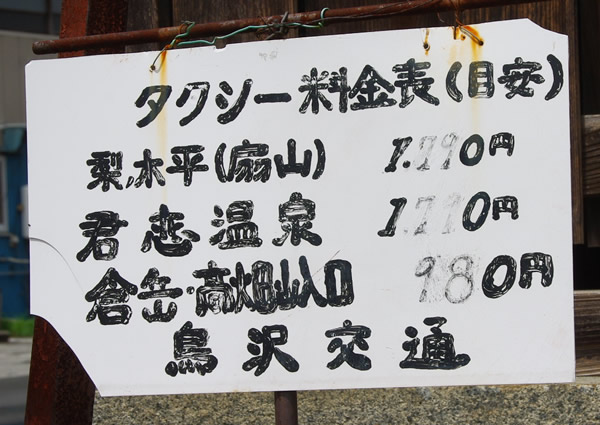 タクシー料金表(目安)
梨ノ木平(扇山) 1.770円
君恋温泉 1770円
倉岳・高畑山入口 980円
鳥沢交通